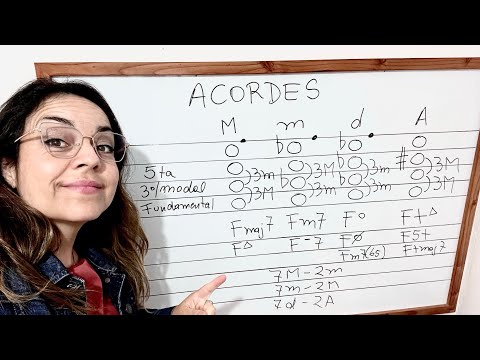 ACORDES
M m d A
bO bO
5ta O )3m O )3M bO )3m #O )3M
3º/modal O )3M bO )3m bO )3m O )3M
Fundamental O O O O
Fmaj7 Fm7 Fº F+△
F△ F-7 FØ F5+
Fm7(b5) F+maj7
7M-2m
7m-2M
7d-2A